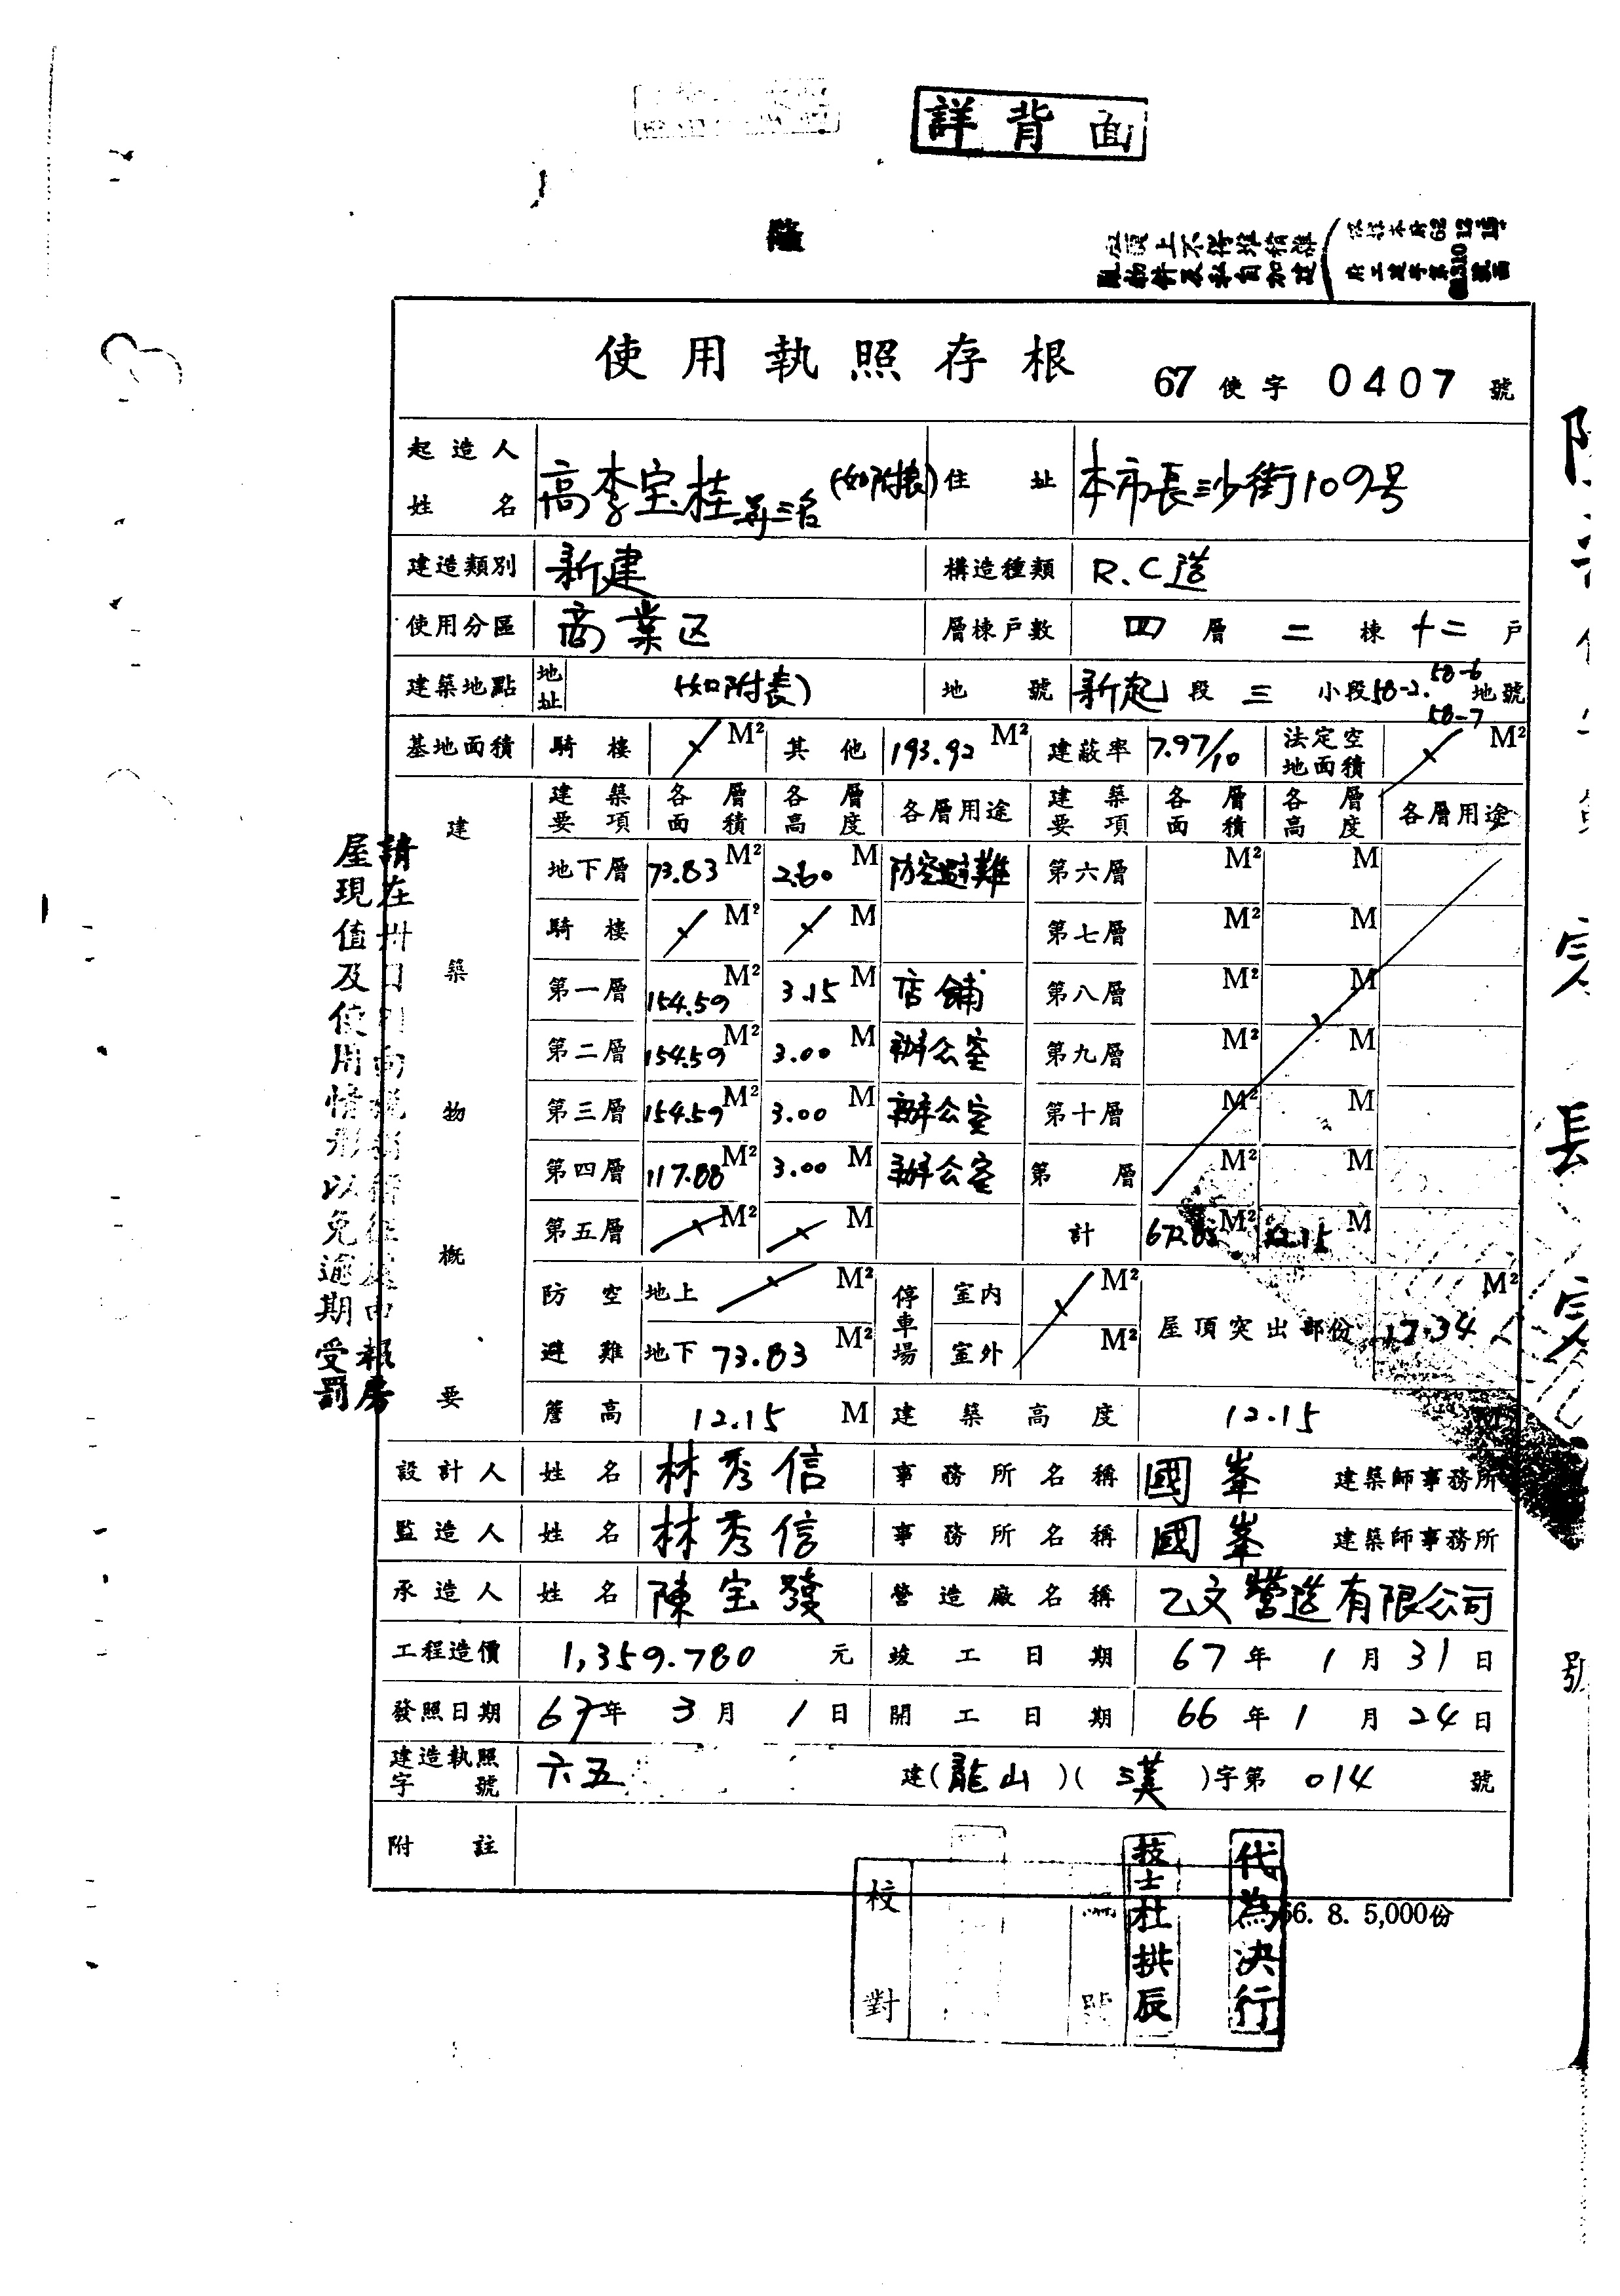 詳背面
使用執照存根
67 使字 0407 號
起造人姓名 高李宝桂等三名 (如附表) 住址 本市長沙街109号
建造類別 新建 構造種類 R.C造
使用分區 商業区 層棟戶數 四層二棟十二戶
建築地點 地址 (如附表) 地號 新起段三小段58-2.58-6 58-7地號
基地面積 騎樓 M² 其他 193.92 M² 建蔽率 7.97/10 法定空地面積 M²
建築物概要
建築要項 各層面積 各層高度 各層用途 建築要項 各層面積 各層高度 各層用途
地下層 73.83 M² 2.60 M 防空避難 第六層 M² M
騎樓 M² M 第七層 M² M
第一層 154.59 M² 3.15 M 店舖 第八層 M² M
第二層 154.59 M² 3.00 M 辦公室 第九層 M² M
第三層 154.59 M² 3.00 M 辦公室 第十層 M² M
第四層 117.88 M² 3.00 M 辦公室 第 層 M² M
第五層 M² M 計 M² 12.15 M
防空避難 地上 M² 停車場 室內 M² 屋頂突出部份 17.34 M²
地下 73.83 M² 室外 M²
簷高 12.15 M 建築高度 12.15
設計人 姓名 林秀信 事務所名稱 國峯 建築師事務所
監造人 姓名 林秀信 事務所名稱 國峯 建築師事務所
承造人 姓名 陳宝發 營造廠名稱 乙文營造有限公司
工程造價 1,359.780 元 竣工日期 67年1月31日
發照日期 67年3月1日 開工日期 66年1月24日
建造執照字號 六五 建(龍山)( 漢 )字第 014 號
附註
66. 8. 5,000份
校對
技士杜拱辰
代為決行
屋現值及使用情形以免逾期受罰